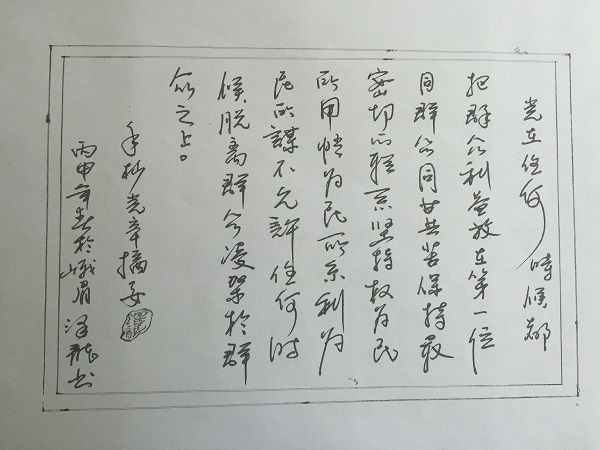 党在任何時候都
把群众利益放在第一位
同群众同甘共苦保持最
密切的联系坚持权为民
所用情为民所系利为
民所謀不允許任何时
候脱离群众凌架於群
众之上。
手抄党章摘要
丙申年春於峨眉